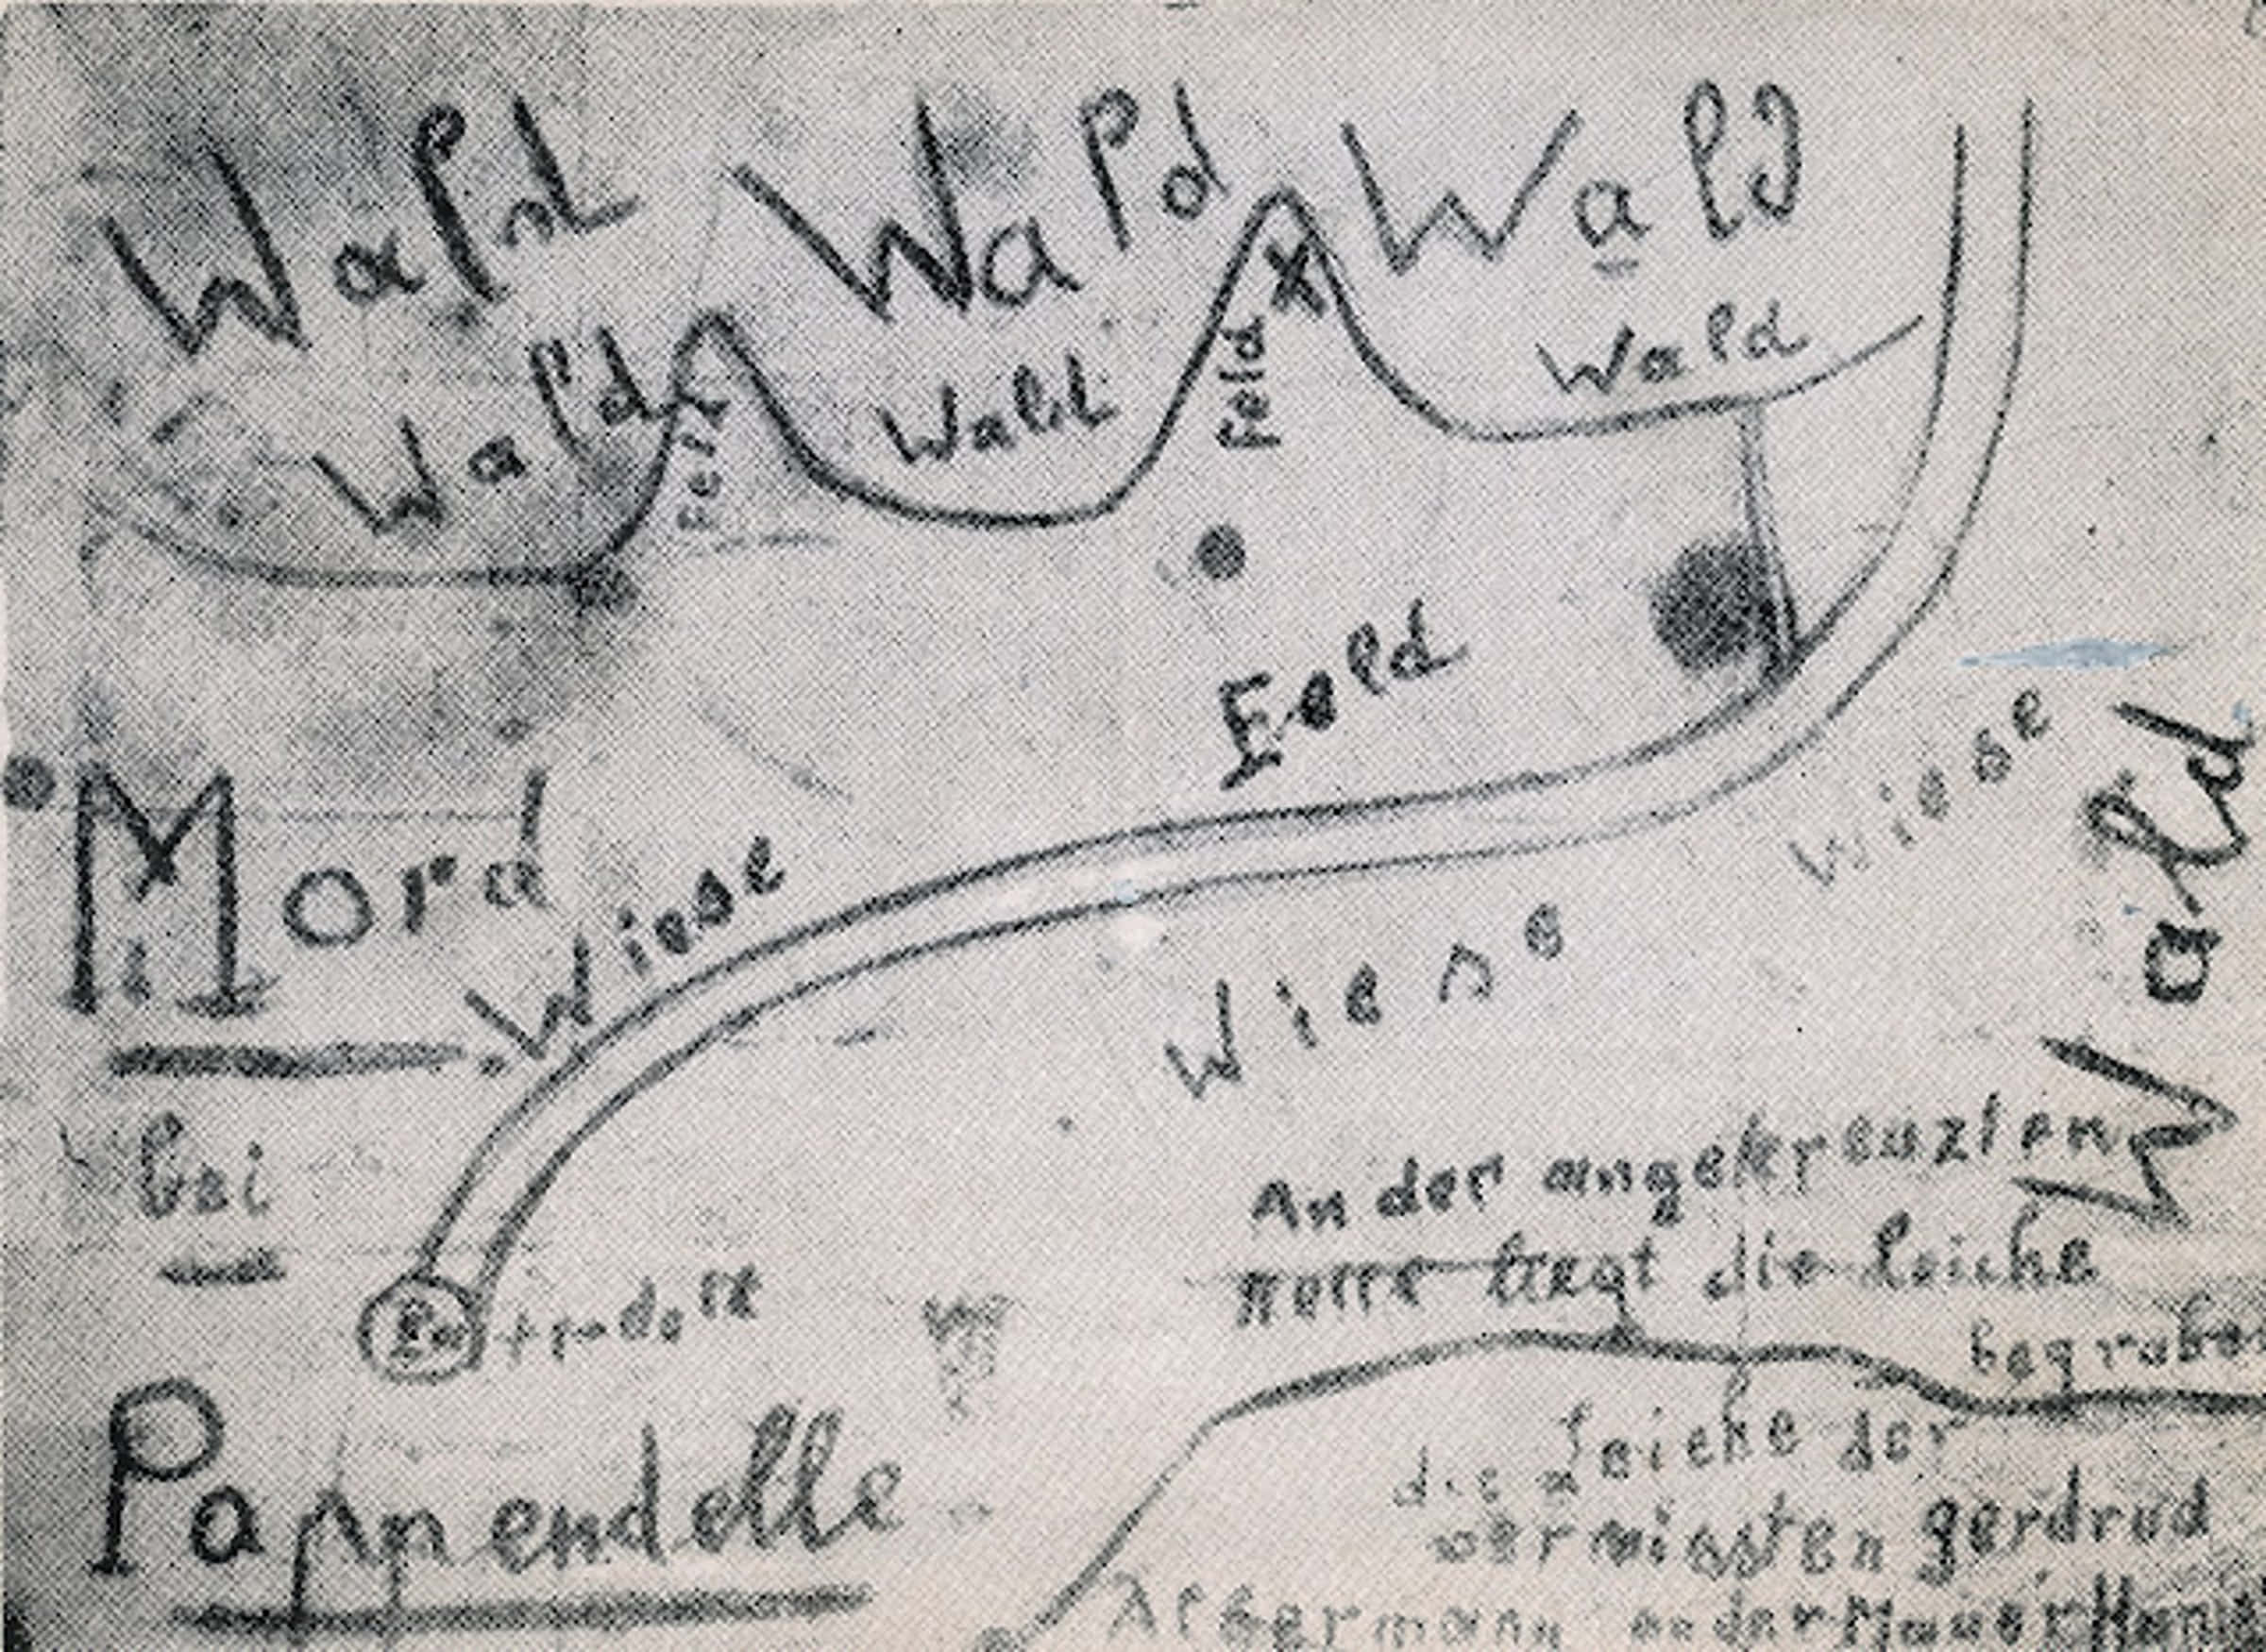 Wald Wald Wald
Wald Feld Wald Feld X Wald
Feld
Mord
Wiese
Wiese
Wiese
Wald
bei
Pappendelle
An der angekreuzten
liegt die Leiche
begraben
die Leiche der
vermissten gerdrud
Albermann an der Mauer Han